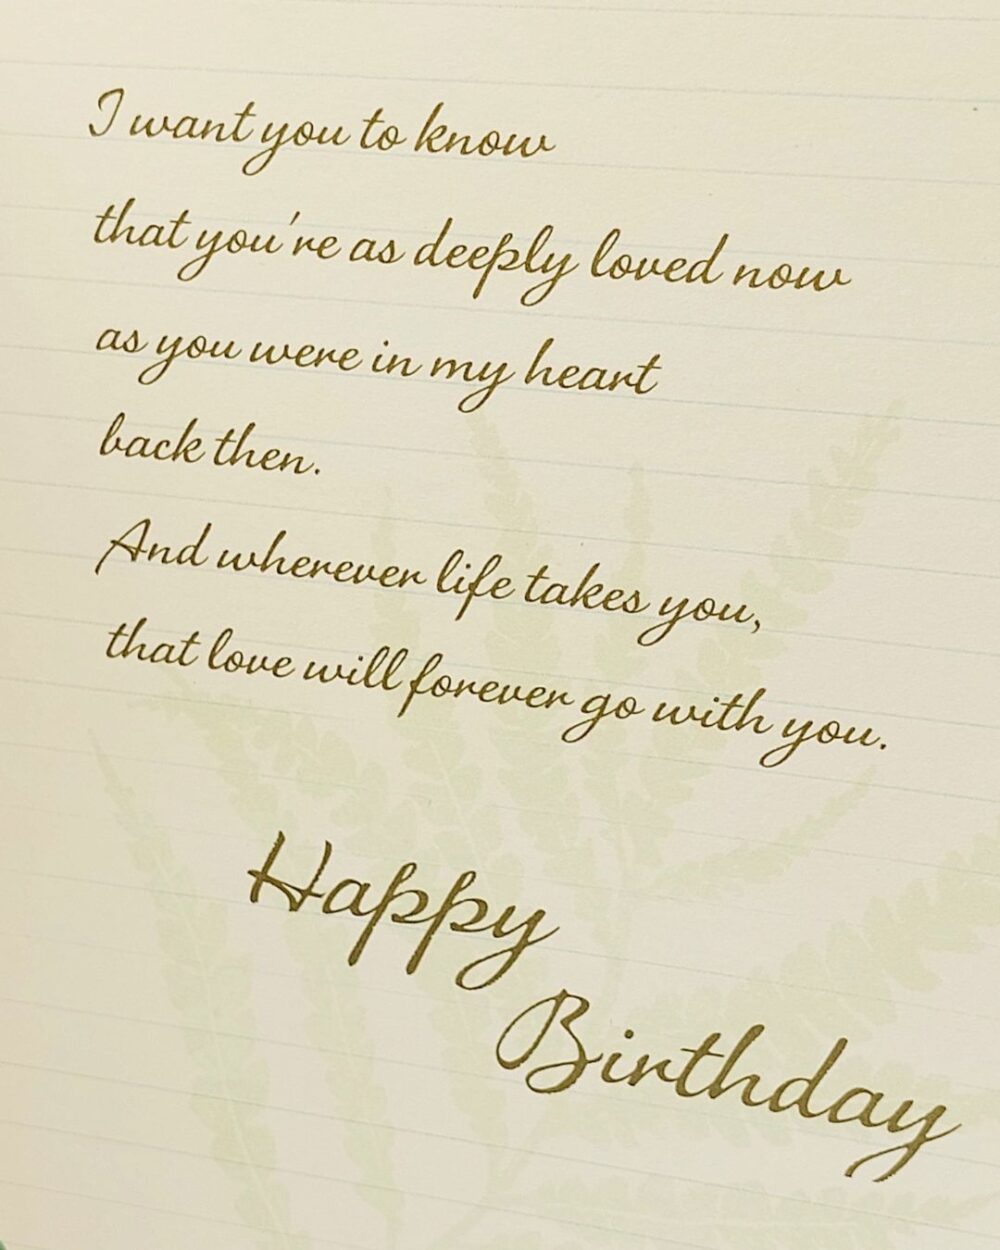 I want you to know
that you're as deeply loved now
as you were in my heart
back then.
And wherever life takes you,
that love will forever go with you.
Happy
Birthday